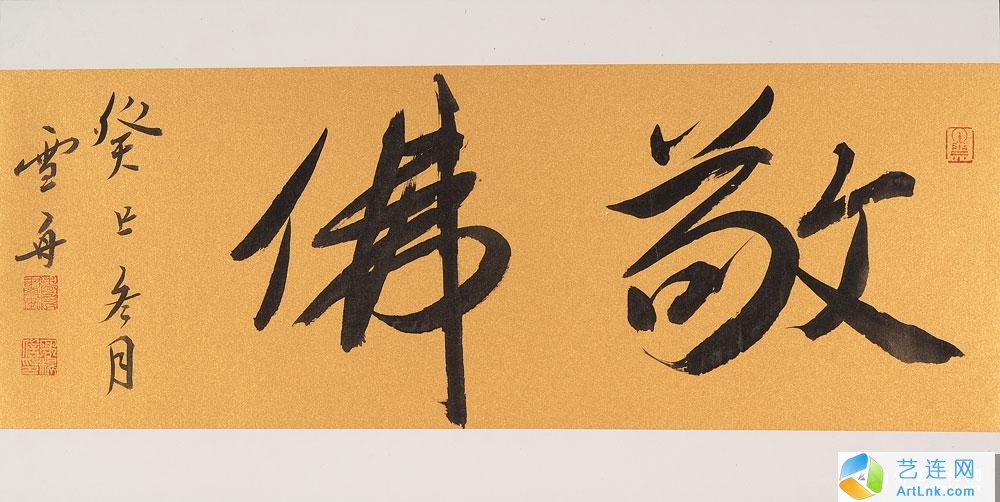 敬佛
癸巳冬月
雪舟
艺连网
ArtLnk.com